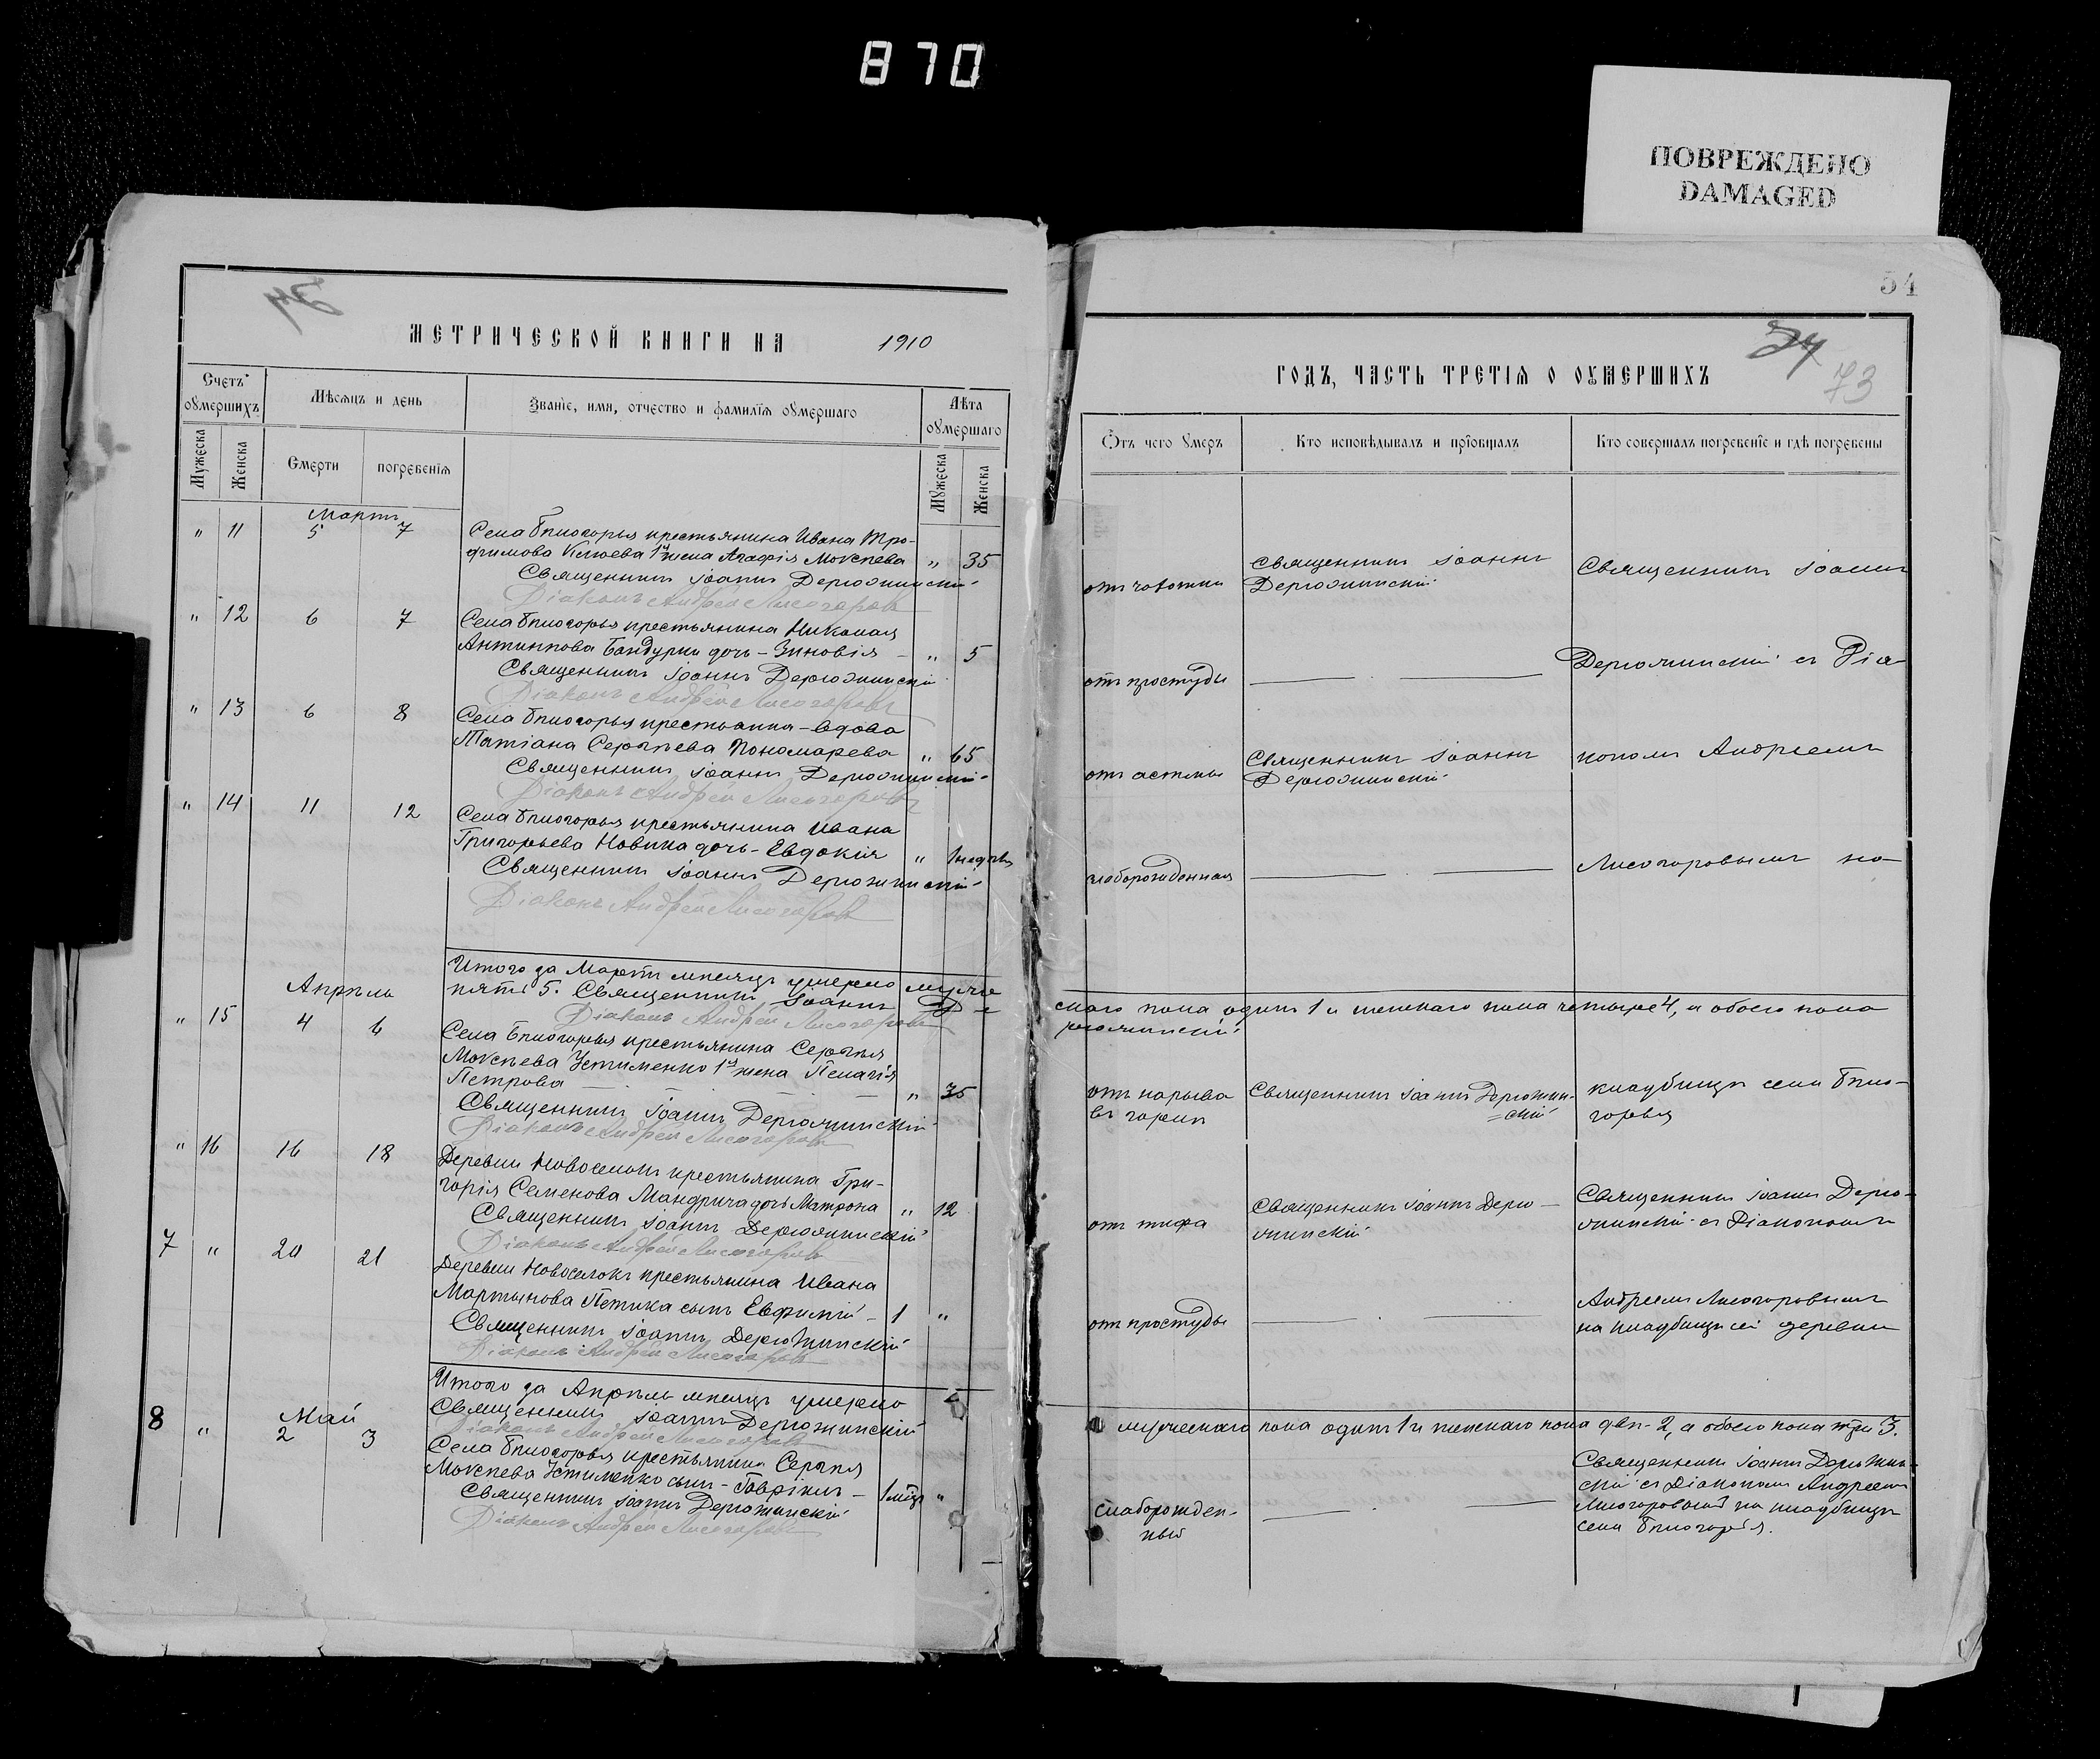 870
ПОВРЕЖДЕНО
DAMAGED
54
МЕТРИЧЕСКОЙ КНИГИ НА 1910
ГОДЪ, ЧАСТЬ ТРЕТІЯ О ОУМЕРШИХЪ
73
Счетъ оумершихъ
Мужеска
Женска
Мѣсяцъ и день
Смерти
погребенія
Званіе, имя, отчество и фамилія оумершаго
Лѣта оумершаго
Мужеска
Женска
Отъ чего умеръ
Кто исповѣдывалъ и пріобщалъ
Кто совершалъ погребеніе и гдѣ погребены
Мартъ
" 11 5 7
Села Бѣлогорья крестьянина Ивана Тро-
фимова Клюева 1я жена Агафія Мокіева " 35
Священникъ Іоаннъ Дерюжинскій
Діаконъ Андрей Лисогоровъ
отъ чахотки
Священникъ Іоаннъ
Дерюжинскій
Священникъ Іоаннъ
" 12 6 7
Села Бѣлогорья крестьянина Николая
Антипова Бандурки дочь - Зиновія - " 5
Священникъ Іоаннъ Дерюжинскій
Діаконъ Андрей Лисогоровъ
отъ простуды
Дерюжинскій съ Діа-
" 13 6 8
Села Бѣлогорья крестьянка - вдова
Татіана Сергѣева Пономарева " 65
Священникъ Іоаннъ Дерюжинскій
Діаконъ Андрей Лисогоровъ
отъ астмы
Священникъ Іоаннъ
Дерюжинскій
кономъ Андреемъ
" 14 11 12
Села Бѣлогорья крестьянина Ивана
Григорьева Новика дочь - Евдокія " 1 недѣл
Священникъ Іоаннъ Дерюжинскій
Діаконъ Андрей Лисогоровъ
слаборожденная
Лисогоровымъ на
Итого за Мартъ мѣсяцъ умерло муже
скаго пола одинъ 1 и женскаго пола четыре 4, а обоего пола
пять 5. Священникъ Іоаннъ Де
рюжинскій
Діаконъ Андрей Лисогоровъ
Апрѣль
" 15 4 6
Села Бѣлогорья крестьянина Сергѣя
Мокіева Устименко 1я жена Пелагія
Петрова " 35
Священникъ Іоаннъ Дерюжинскій
Діаконъ Андрей Лисогоровъ
отъ нарыва
въ горлѣ
Священникъ Іоаннъ Дерюжин-
скій
кладбищѣ села Бѣло-
горья
" 16 16 18
Деревни Новоселокъ крестьянина Гри-
горія Семенова Мандрича дочь Матрона " 12
Священникъ Іоаннъ Дерюжинскій
Діаконъ Андрей Лисогоровъ
отъ тифа
Священникъ Іоаннъ Дерю-
жинскій
Священникъ Іоаннъ Дерю-
жинскій съ Діакономъ
7 " 20 21
Деревни Новоселокъ крестьянина Ивана
Мартынова Петика сынъ Евфимій - 1 "
Священникъ Іоаннъ Дерюжинскій
Діаконъ Андрей Лисогоровъ
отъ простуды
Андреемъ Лисогоровымъ
на кладбищѣ сей деревни
Итого за Апрѣль мѣсяцъ умерло
мужескаго пола одинъ 1 и женскаго пола двѣ - 2, а обоего пола три 3.
Священникъ Іоаннъ Дерюжинскій
Діаконъ Андрей Лисогоровъ
Май
8 " 2 3
Села Бѣлогорья крестьянина Сергѣя
Мокіева Устименко сынъ - Гавріилъ - 1 мѣц "
Священникъ Іоаннъ Дерюжинскій
Діаконъ Андрей Лисогоровъ
слаборожден-
ный
Священникъ Іоаннъ Дерюжин-
скій съ Діакономъ Андреемъ
Лисогоровымъ на кладбищѣ
села Бѣлогорія.